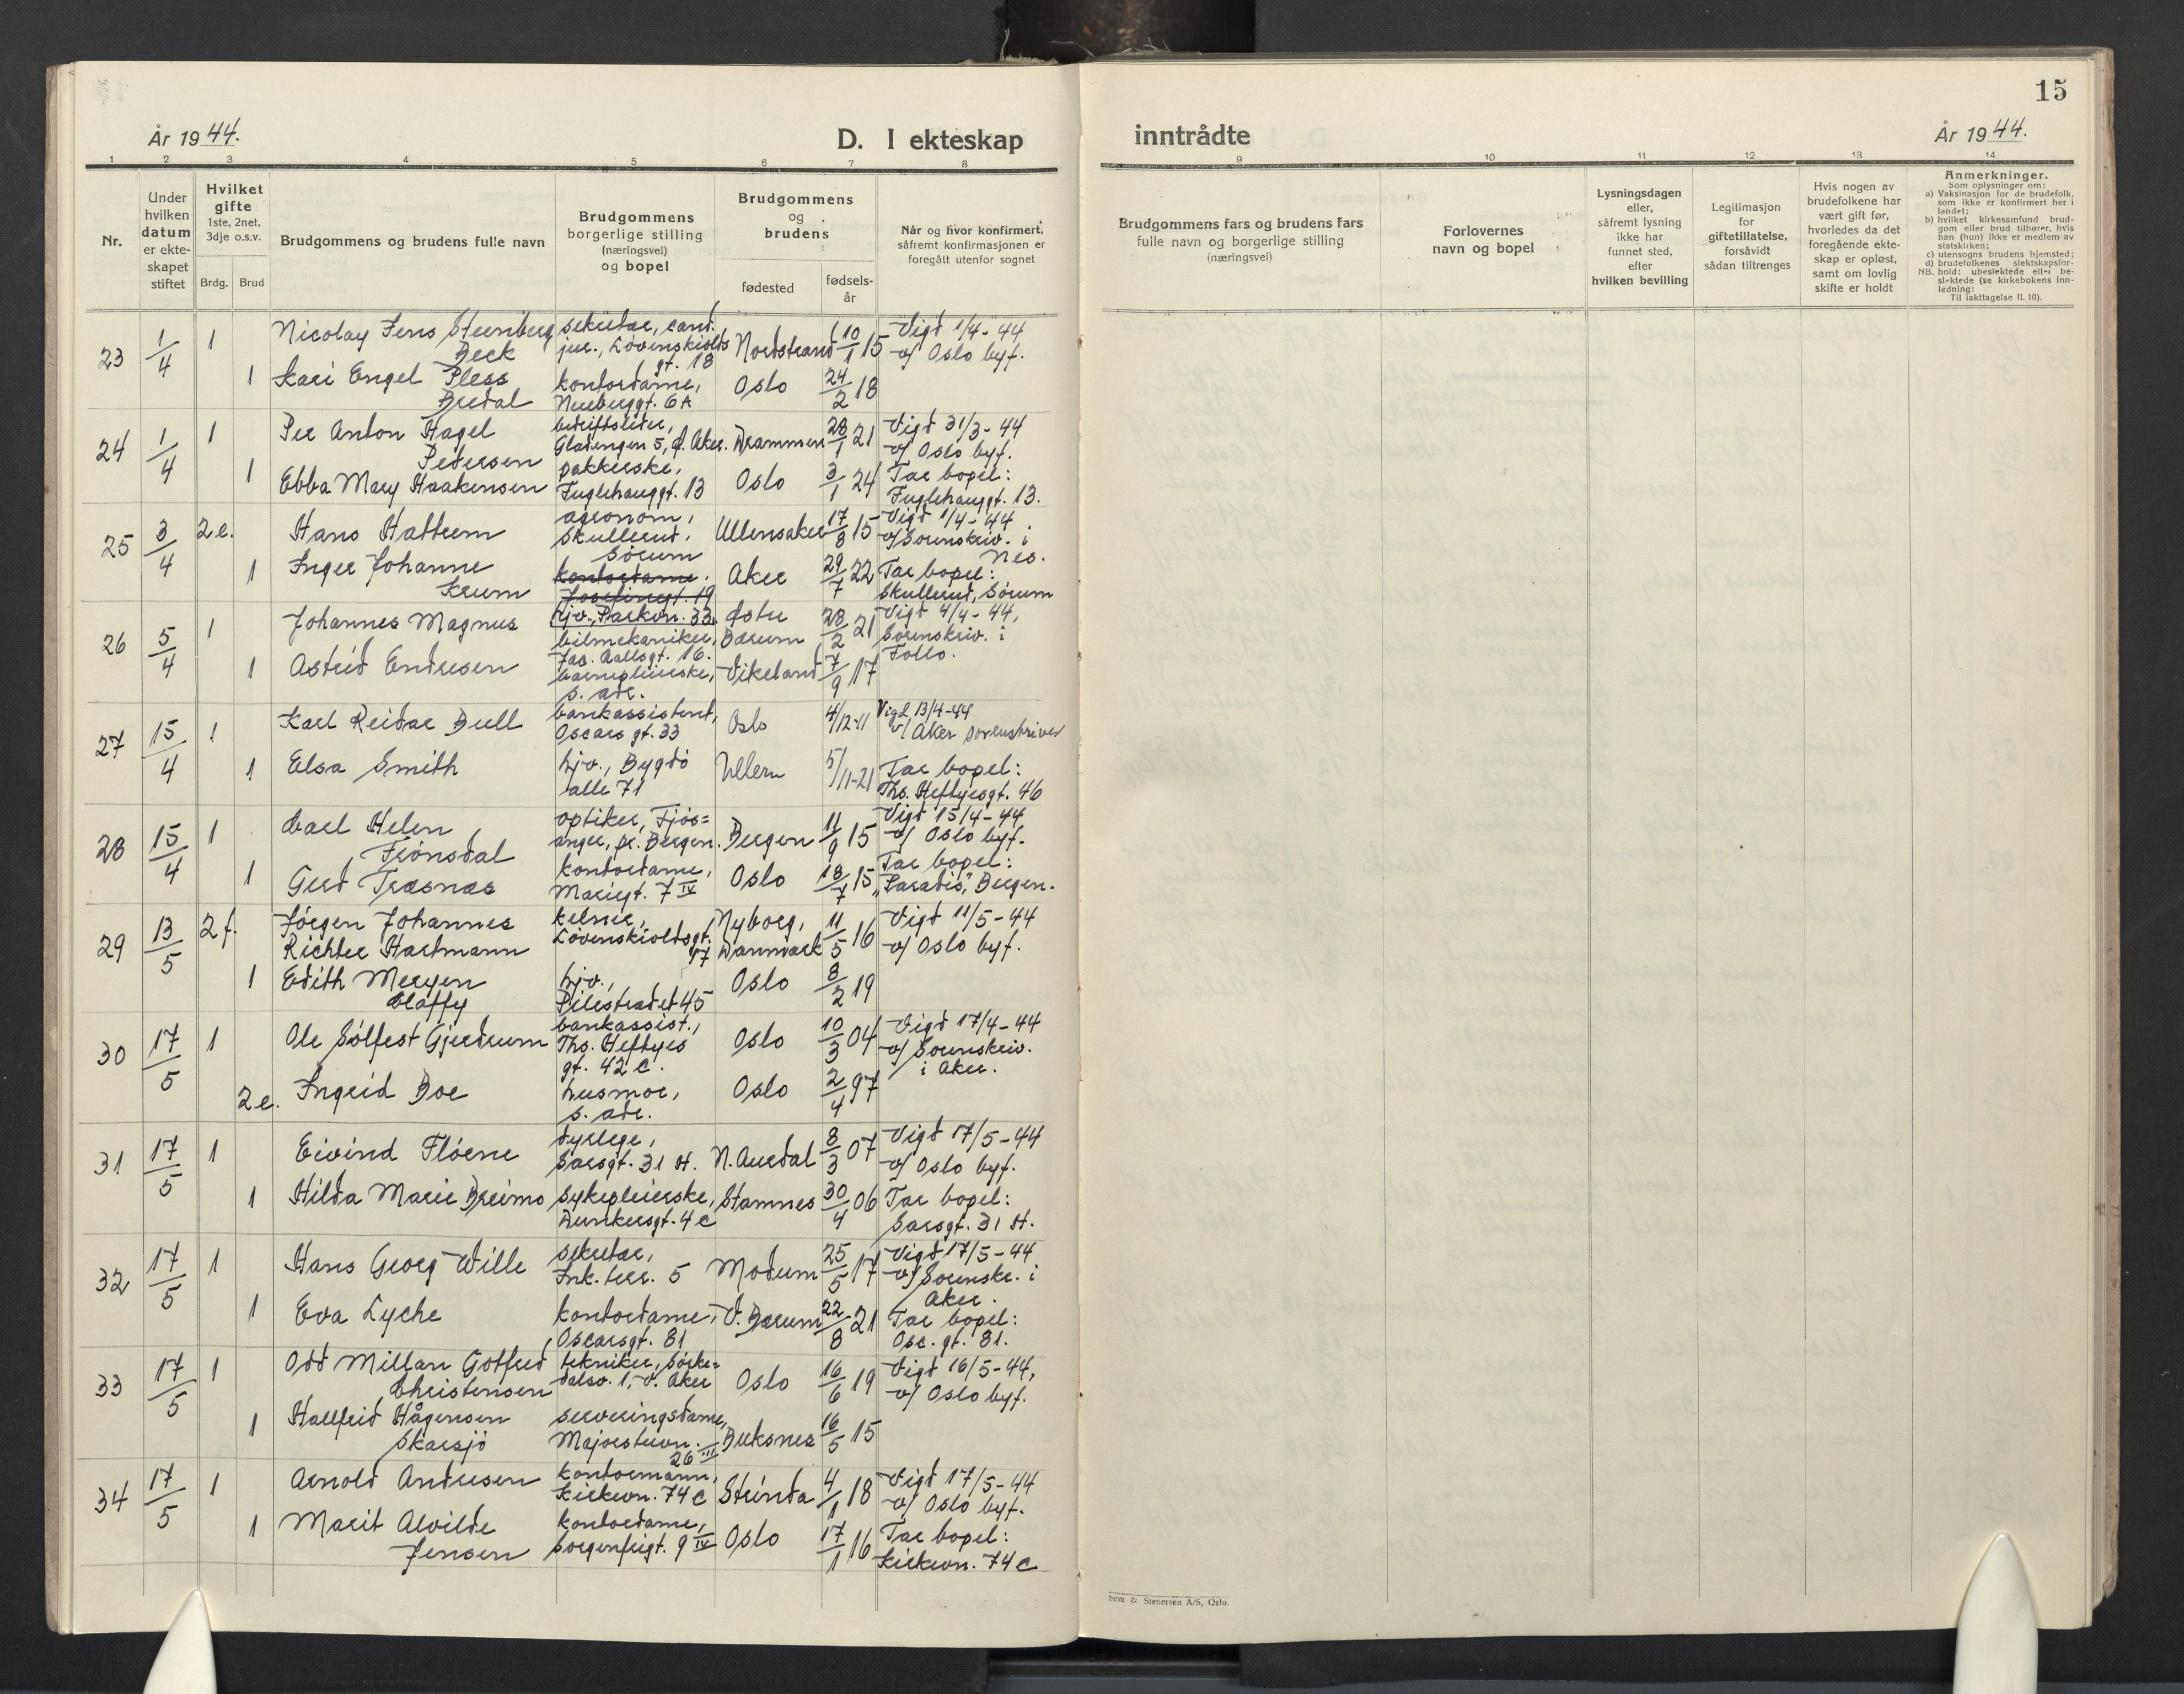 15
År 1944.
D. I ekteskap inntrådte
År 1944.
1 2 3 4 5 6 7 8 9 10 11 12 13 14
Nr.
Under
hvilken
datum
er ekte-
skapet
stiftet
Hvilket
gifte
1ste, 2net,
3dje o.s.v.
Brdg. Brud
Brudgommens og brudens fulle navn
Brudgommens
borgerlige stilling
(næringsvei)
og bopel
Brudgommens
og
brudens
fødested
fødsels-
år
Når og hvor konfirmert,
såfremt konfirmasjonen er
foregått utenfor sognet
Brudgommens fars og brudens fars
fulle navn og borgerlige stilling
(næringsvei)
Forlovernes
navn og bopel
Lysningsdagen
eller,
såfremt lysning
ikke har
funnet sted,
efter
hvilken bevilling
Legitimasjon
for
giftetillatelse,
forsåvidt
sådan tiltrenges
Hvis nogen av
brudefolkene har
vært gift før,
hvorledes da det
foregående ekte-
skap er opløst,
samt om lovlig
skifte er holdt
Anmerkninger.
Som oplysninger om:
a) Vaksinasjon for de brudefolk,
som ikke er konfirmert her i
landet;
b) hvilket kirkesamfund brud-
gom eller brud tilhører, hvis
han (hun) ikke er medlem av
statskirken;
c) utensogns brudens hjemsted;
d) brudefolkenes slektskapsfor-
NB. hold: ubeslektede eller be-
slektede (se kirkebokens inn-
ledning:
Til iakttagelse II. 10).
23 1/4 1 Nicolay Jens Steenberg Beck sekretær, cand. jur., Løvenskiolds gt. 18 Nordstrand 10/1 15 Vigd 1/4-44 v/ Oslo byf.
1 Kari Engel Pless Bredal kontordame, Neuberggt. 6A Oslo 24/2 18
24 1/4 1 Per Anton Hagel Pedersen bedriftsleder, Gladengen 5, Ø. Aker. Drammen 28/1 21 Vigd 31/3-44 v/ Oslo byf.
1 Ebba Mary Haakensen pakkerske, Fuglehauggt. 13 Oslo 3/1 24 Tar bopel: Fuglehauggt. 13.
25 3/4 2e. Hans Hattrem agronom, Skullerud, Sørum Ullensaker 17/8 15 Vigd 1/4-44 v/ Sorenskriv. i Nes.
1 Inger Johanne Krum kontordame. Josefinegt. 19 Aker 29/7 22 Tar bopel: Skullerud, Sørum
hjv., Parkvn. 33.
26 5/4 1 Johannes Magnus bilmekaniker, Jac. Aallsgt. 16. Østre Bærum 28/2 21 Vigd 4/4-44, Sorenskriv. i Follo.
1 Astrid Endresen barnepleierske, s. adr. Vikeland 7/9 17
27 15/4 1 Karl Reidar Bull bankassistent, Oscars gt. 33 Oslo 4/12-11 Vigd 13/4-44 v/ Aker sorenskriver
1 Elsa Smith hjv., Bygdö alle 71 Ullern 5/11-21 Tar bopel: Ths. Heftyesgt. 46
28 15/4 1 Carl Helen Frönsdal optiker, Fjøs=anger, pr. Bergen. Bergen 11/9 15 Vigd 15/4-44 v/ Oslo byf.
1 Gerd Træsnæs kontordame, Mariegt. 7 IV Oslo 18/7 15 Tar bopel: "Paradis", Bergen.
29 13/5 2f. Jørgen Johannes Richter Hartmann kelner, Løvenskioldsgt. 17 Nyborg, Danmark 11/5 16 Vigd 11/5-44 v/ Oslo byf.
1 Edith Meryen Claffy hjv., Pilestrædet 45 Oslo 8/2 19
30 17/5 1 Ole Sølfest Gjerdrum bankassist., Ths. Heftyes gt. 42 C. Oslo 10/3 04 Vigd 17/4-44 v/ Sorenskriv. i Aker.
2e. Ingrid Boe husmor, s. adr. Oslo 2/4 97
31 17/5 1 Eivind Fløene dyrlege, Sarsgt. 31 st. N. Aurdal 8/3 07 Vigd 17/5-44 v/ Oslo byf.
1 Hilda Marie Breimo sykepleierske, Dunkersgt. 4 c Stamnes 30/4 06 Tar bopel: Sarsgt. 31 st.
32 17/5 1 Hans Georg Wille sekretær, Ink. terr. 5 Modum 25/5 17 Vigd 17/5-44 v/ Sorenskr. i Aker.
1 Eva Lyche kontordame, Oscarsgt. 81 V. Bærum 22/8 21 Tar bopel: Osc. gt. 81.
33 17/5 1 Odd Millan Gotfred Christensen tekniker, Sørke=dalsv. 1, V. Aker Oslo 16/6 19 Vigd 16/5-44, v/ Oslo byf.
1 Hallfrid Hågensen Skarsjö serveringsdame, Majorstuvn. 26 III Buksnes 16/5 15
34 17/5 1 Arnold Andresen kontormann, Kirkevn. 74 C Strinda 4/1 18 Vigd 17/5-44 v/ Oslo byf.
1 Marit Alvilde Jensen kontordame, Sorgenfrigt. 9 IV Oslo 17/1 16 Tar bopel: Kirkevn. 74 C
Sem & Stenersen A/S, Oslo.